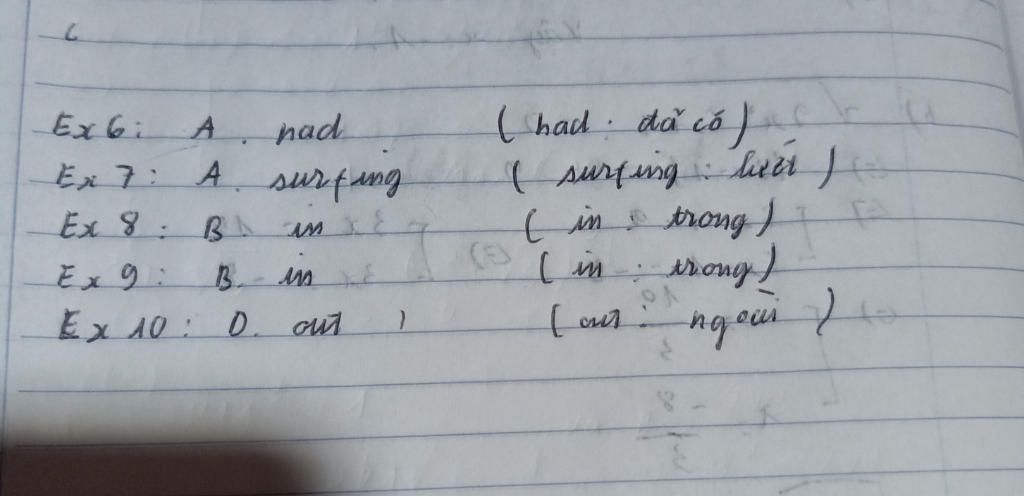 Ex 6 : A. had (had : đã có)
Ex 7 : A. surfing (surfing : lướt)
Ex 8 : B. in (in : trong)
Ex 9 : B. in (in : trong)
Ex 10 : D. out (out : ngoài)